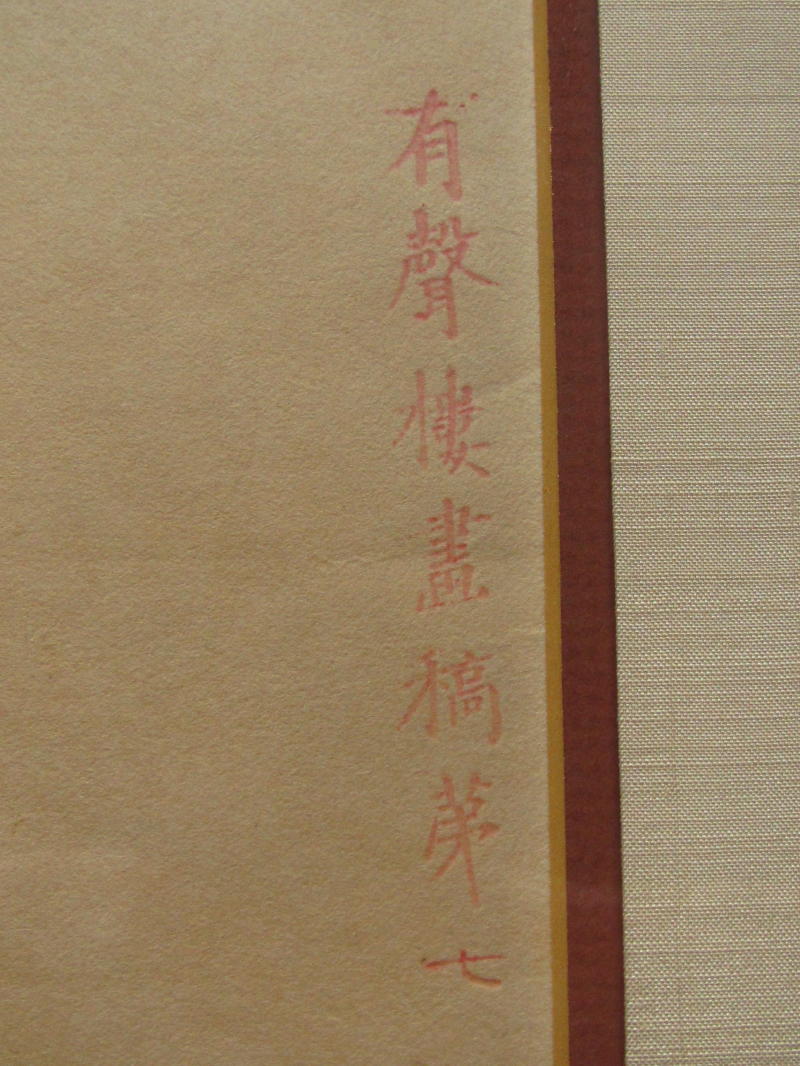 有聲樓畫稿第七